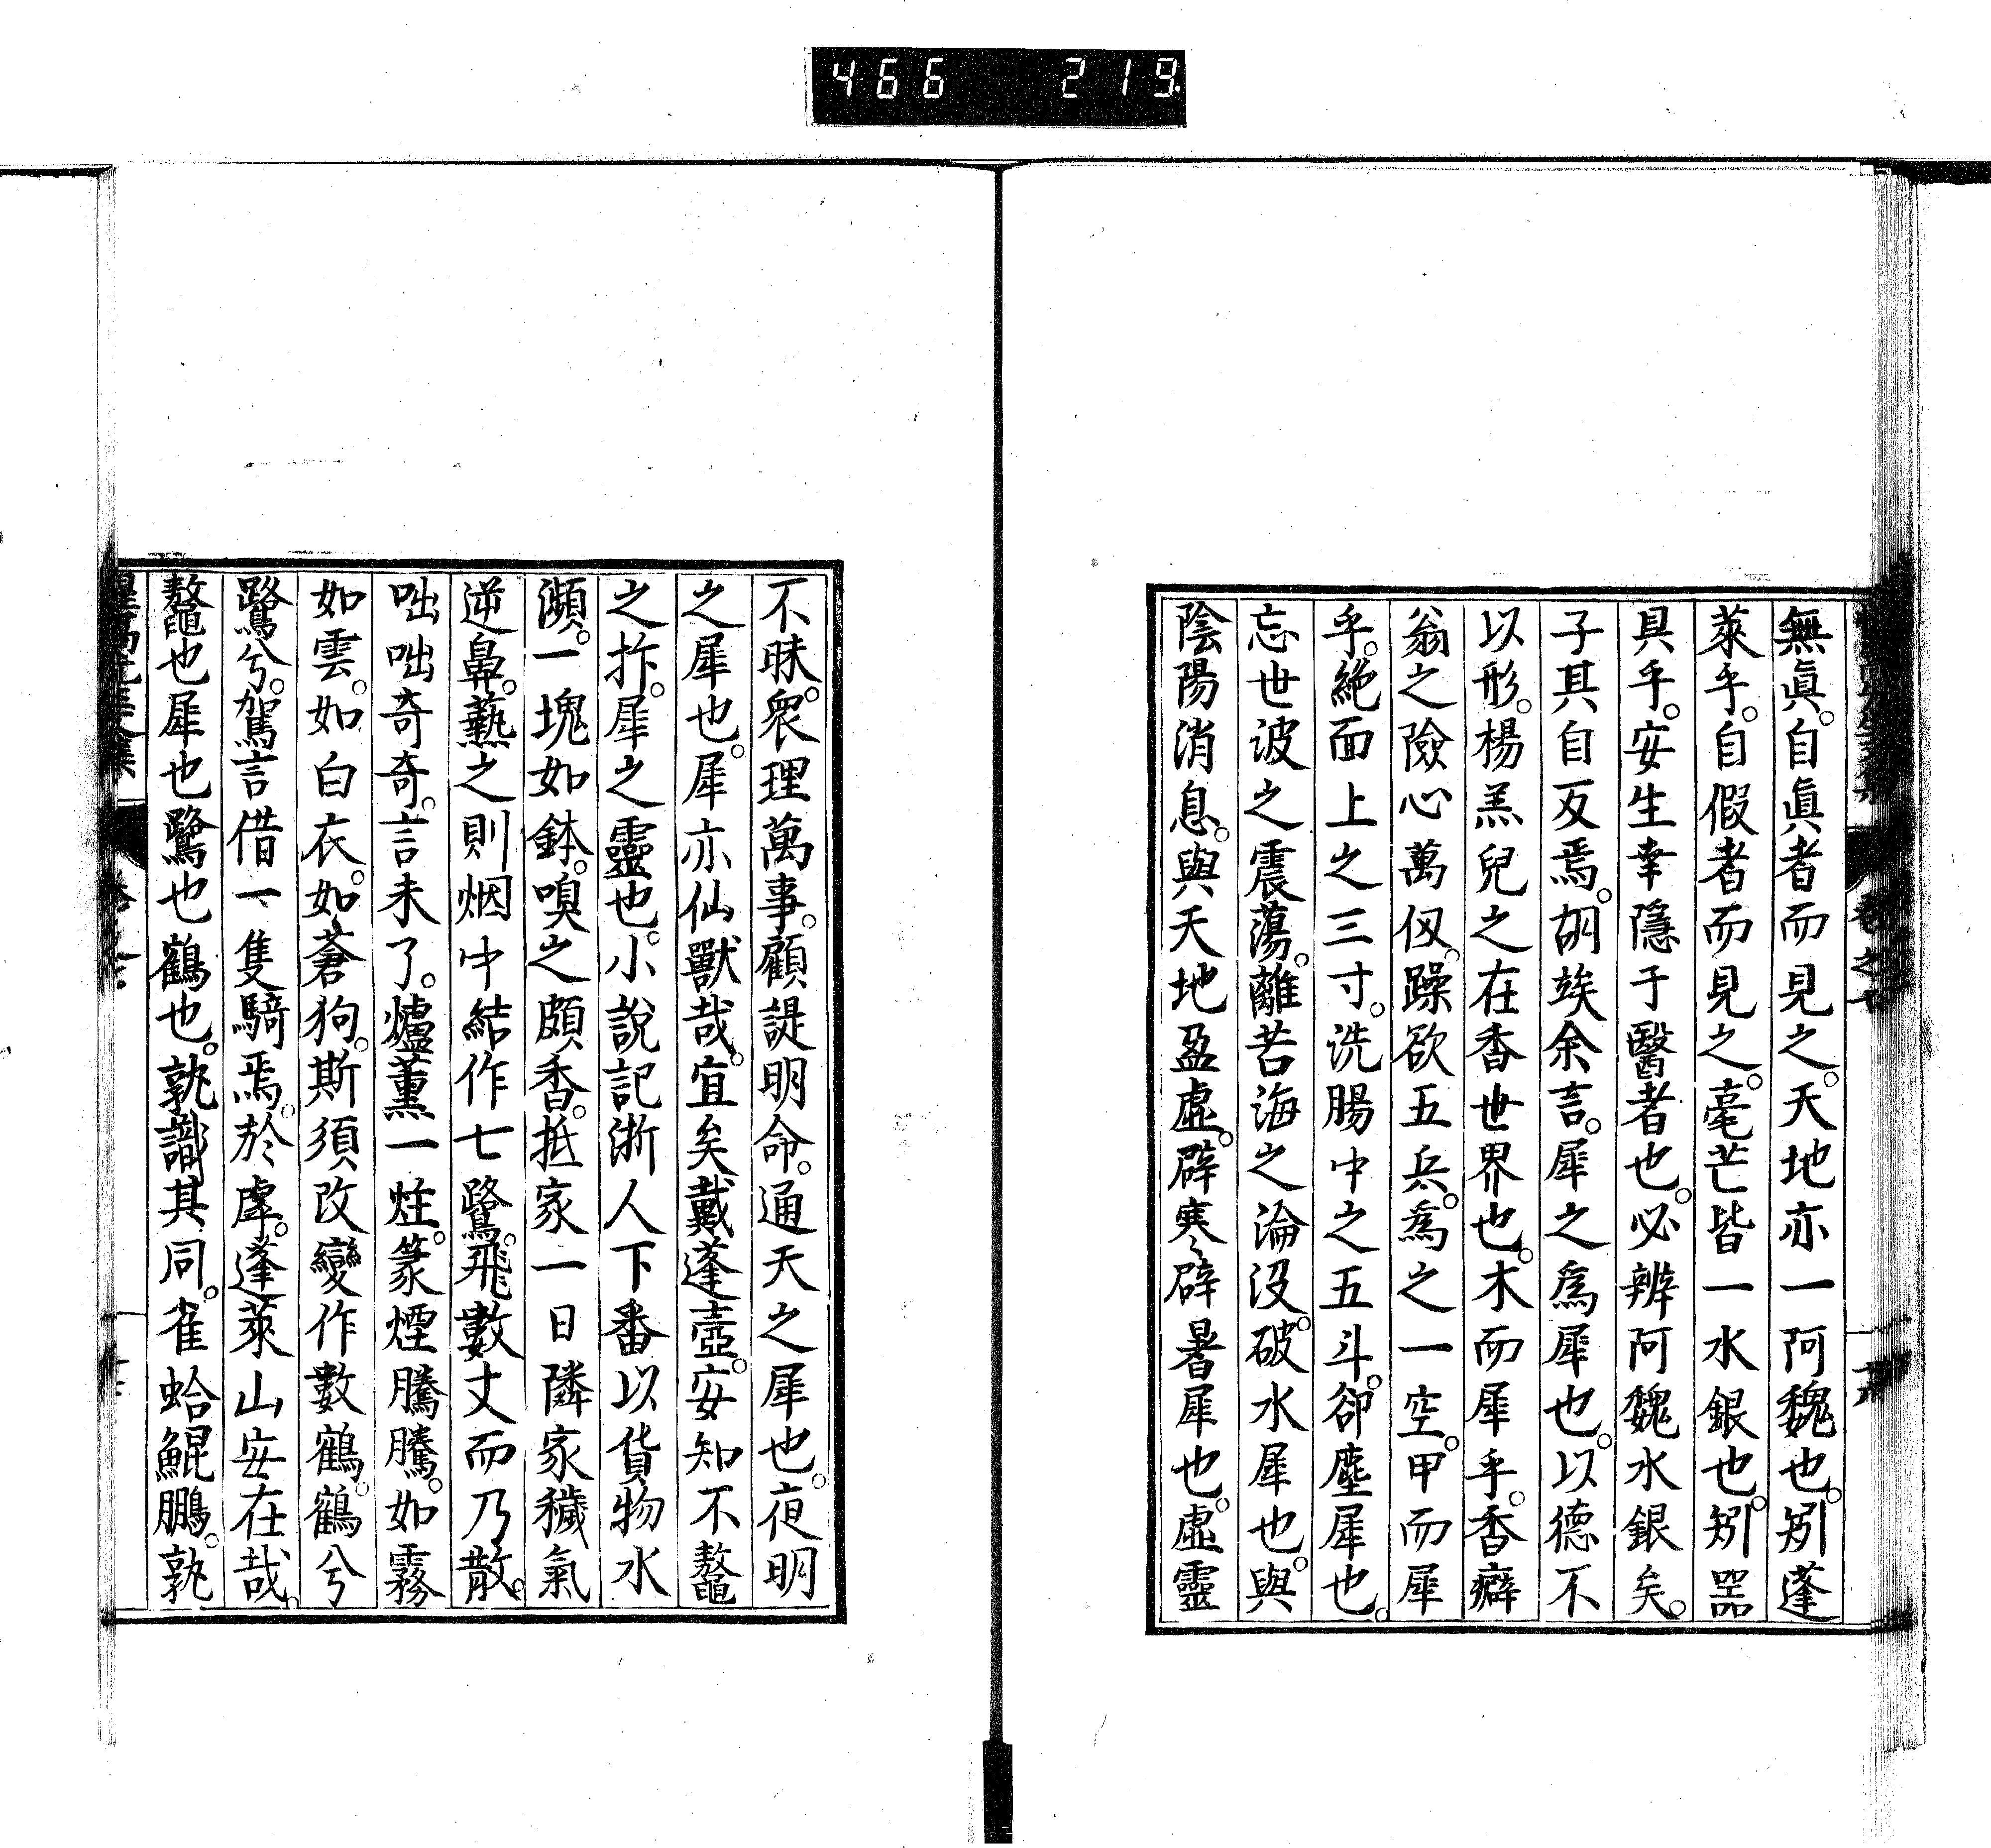 466 219
無眞。自眞者而見之。天地亦一阿魏也。矧蓬
萊乎。自假者而見之。毫芒皆一水銀也。矧器
具乎。安生幸隱于醫者也。必辨阿魏水銀矣。
子其自反焉。胡竢余言。犀之爲犀也。以德不
以形。楊羔兒之在香世界也。木而犀乎。香癖
翁之險心萬仭。躁欲五兵。爲之一空。甲而犀
乎。絶面上之三寸。洗腸中之五斗。卻塵犀也。
忘世波之震蕩。離苦海之淪沒。破水犀也。與
陰陽消息。與天地盈虛。辟寒辟暑犀也。虛靈
不昧。衆理萬事。顧諟明命。通天之犀也。夜明
之犀也。犀亦仙獸哉。宜矣戴蓬壺。安知不鼇
之抃。犀之靈也。小說記浙人下番以貨物水
瀕。一塊如鉢。嗅之頗香。抵家一日隣家穢氣
逆鼻。爇之則烟中結作七鷺。飛數丈而乃散。
咄咄奇奇。言未了。爐薰一炷。篆煙騰騰。如霧
如雲。如白衣。如蒼狗。斯須改變作數鶴。鶴兮
鷺兮。駕言借一隻騎焉。於虖。蓬萊山安在哉。
鼇也犀也鷺也鶴也。孰識其同。雀蛤鯤鵬。孰